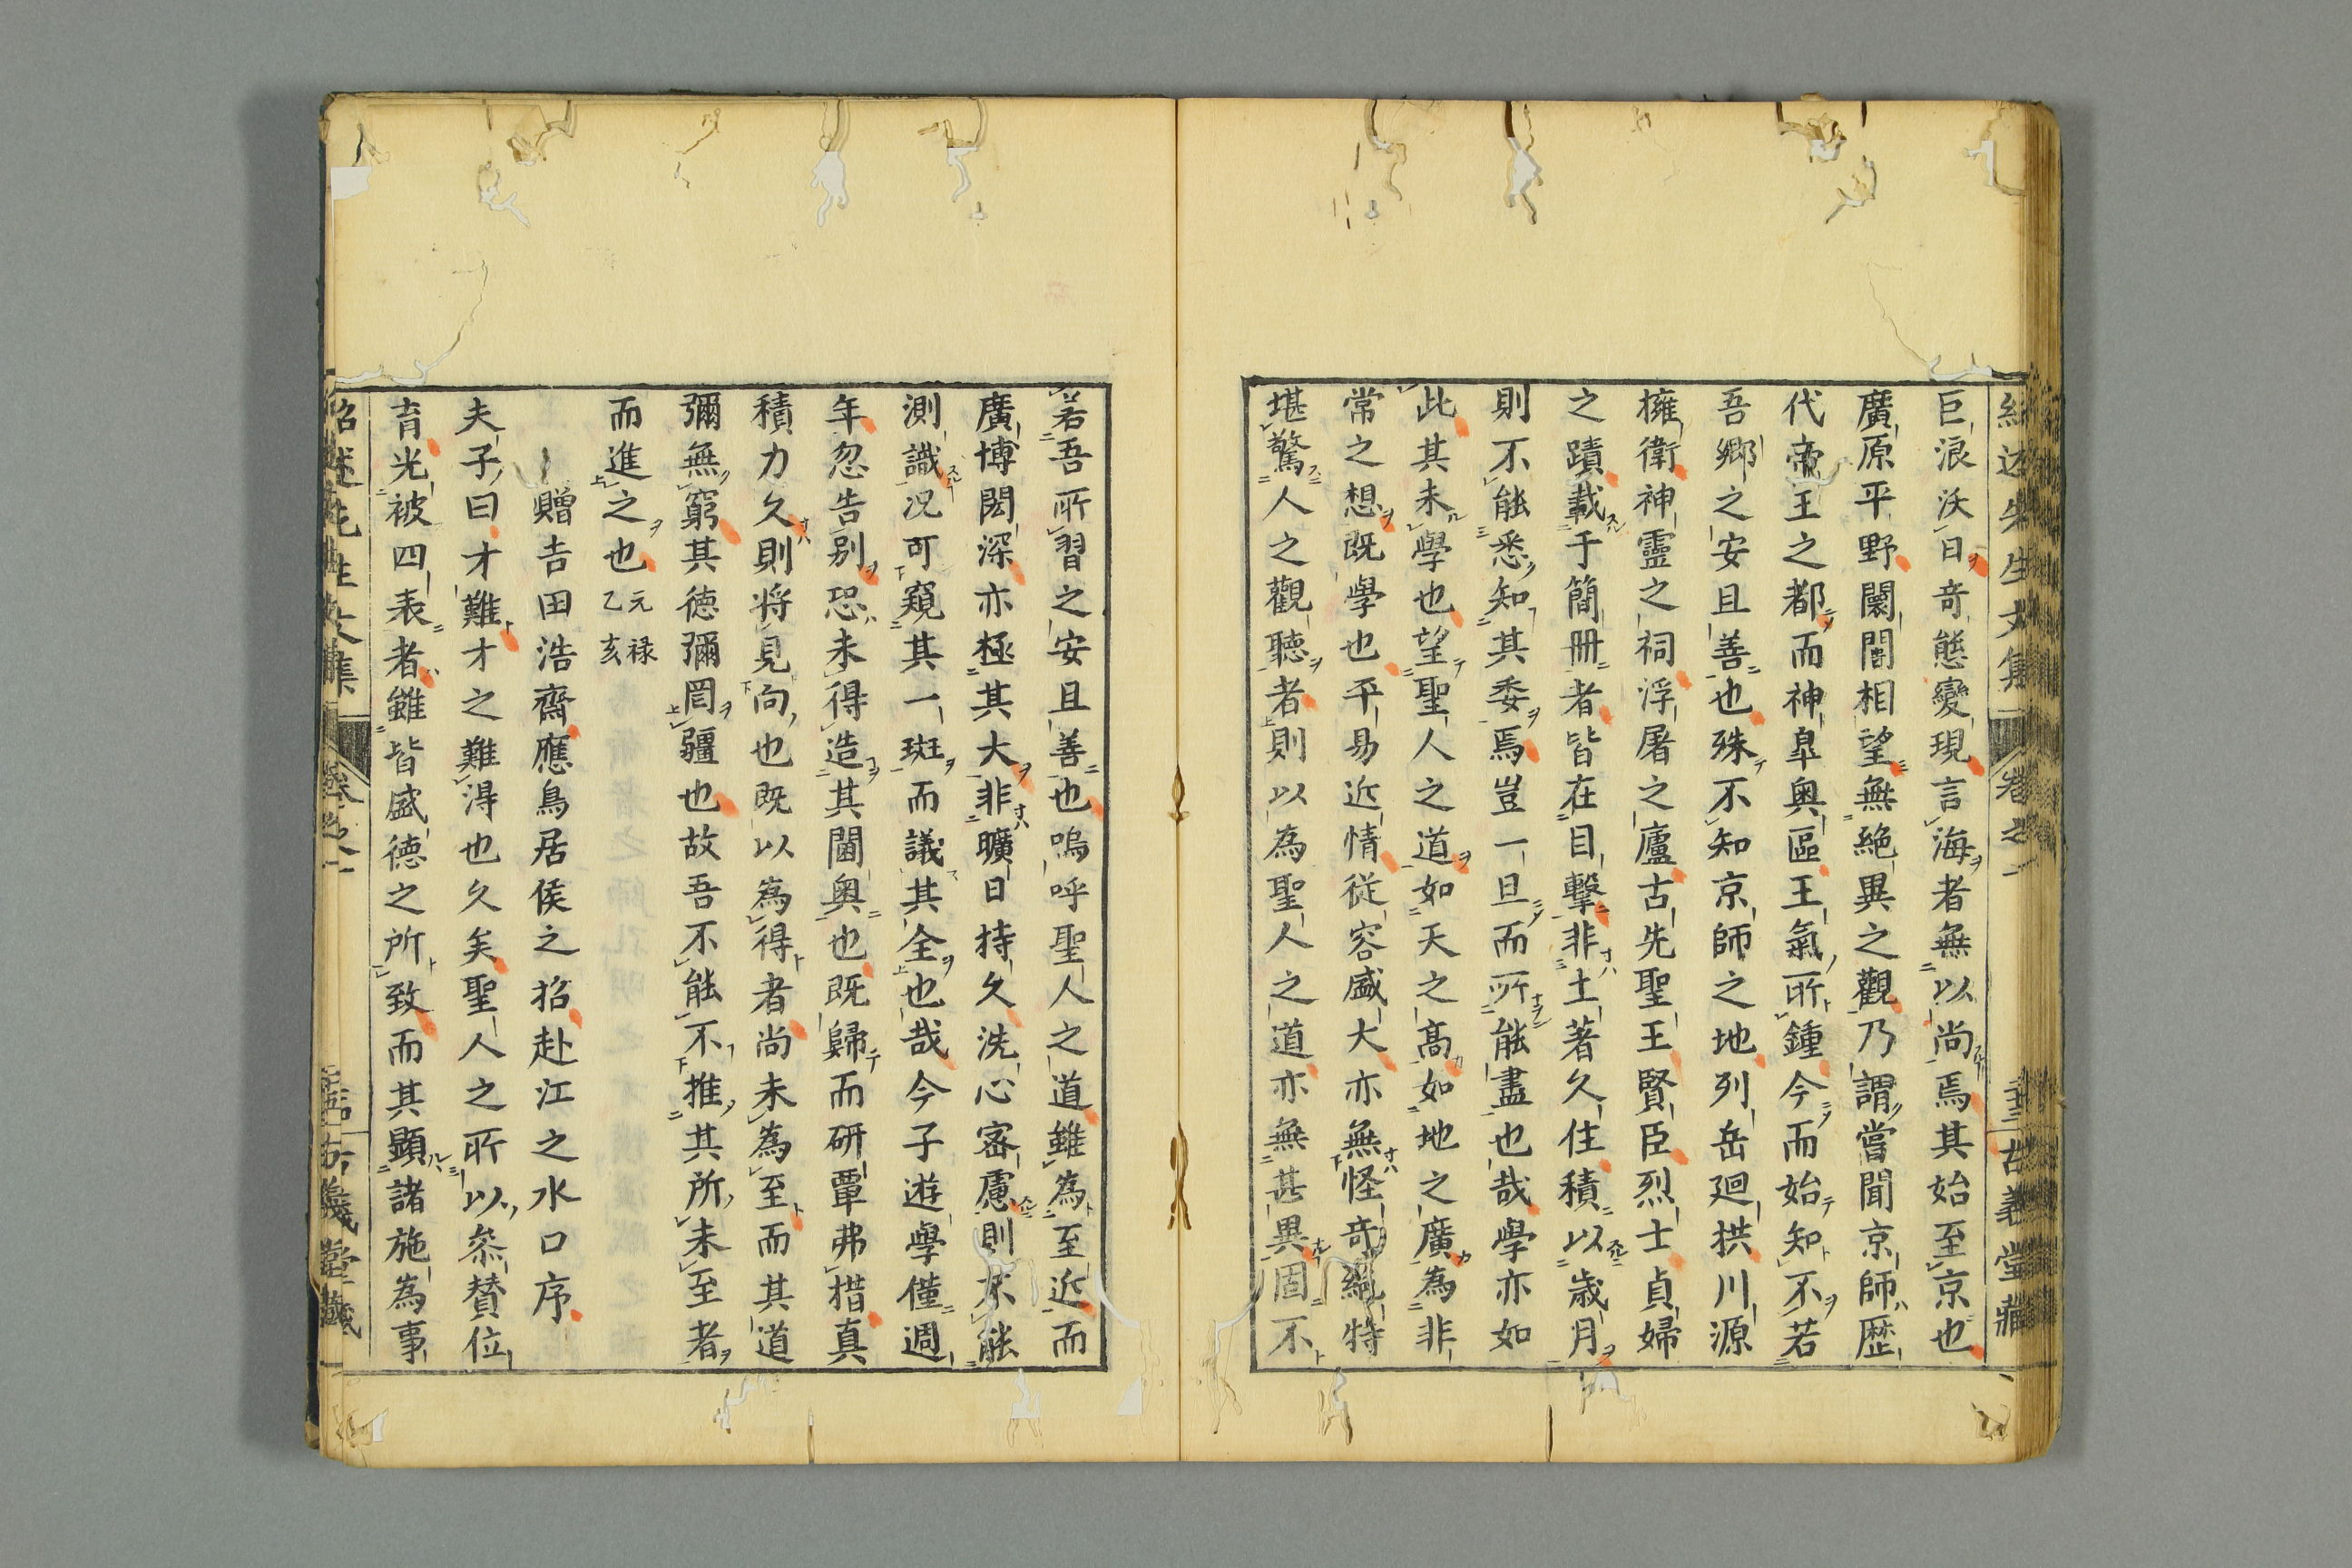 紹述先生文集 卷之一 古義堂藏
巨浪沃日奇態變現言海者無以尚焉其始至京也
廣原平野闤闠相望無絶異之觀乃謂嘗聞京師歴
代帝王之都而神皐奥區王氣所鍾今而始知不若
吾郷之安且善也殊不知京師之地列岳廻拱川源
擁衛神靈之祠浮屠之廬古先聖王賢臣烈士貞婦
之蹟載于簡冊者皆在目擊非土著久住積以歳月
則不能悉知其委焉豈一旦而所能盡也哉學亦如
此其未學也望聖人之道如天之髙如地之廣為非
常之想既學也平易近情從容盛大亦無怪奇絶特
堪驚人之觀聽者則以為聖人之道亦無甚異固不
若吾所習之安且善也嗚呼聖人之道雖為至近而
廣博閎深亦極其大非曠日持久洗心密慮則不能
測識况可窺其一斑而議其全也哉今子遊學僅週
年忽告别恐未得造其閫奥也既歸而研覃弗措真
積力久則將見向也既以為得者尚未為至而其道
彌無窮其徳彌罔疆也故吾不能不推其所未至者
而進之也元禄乙亥
贈吉田浩齋應鳥居侯之招赴江之水口序
夫子曰才難才之難得也久矣聖人之所以叅賛位
育光被四表者雖皆盛徳之所致而其顕諸施為事
紹述先生文集 卷之一 古義堂藏